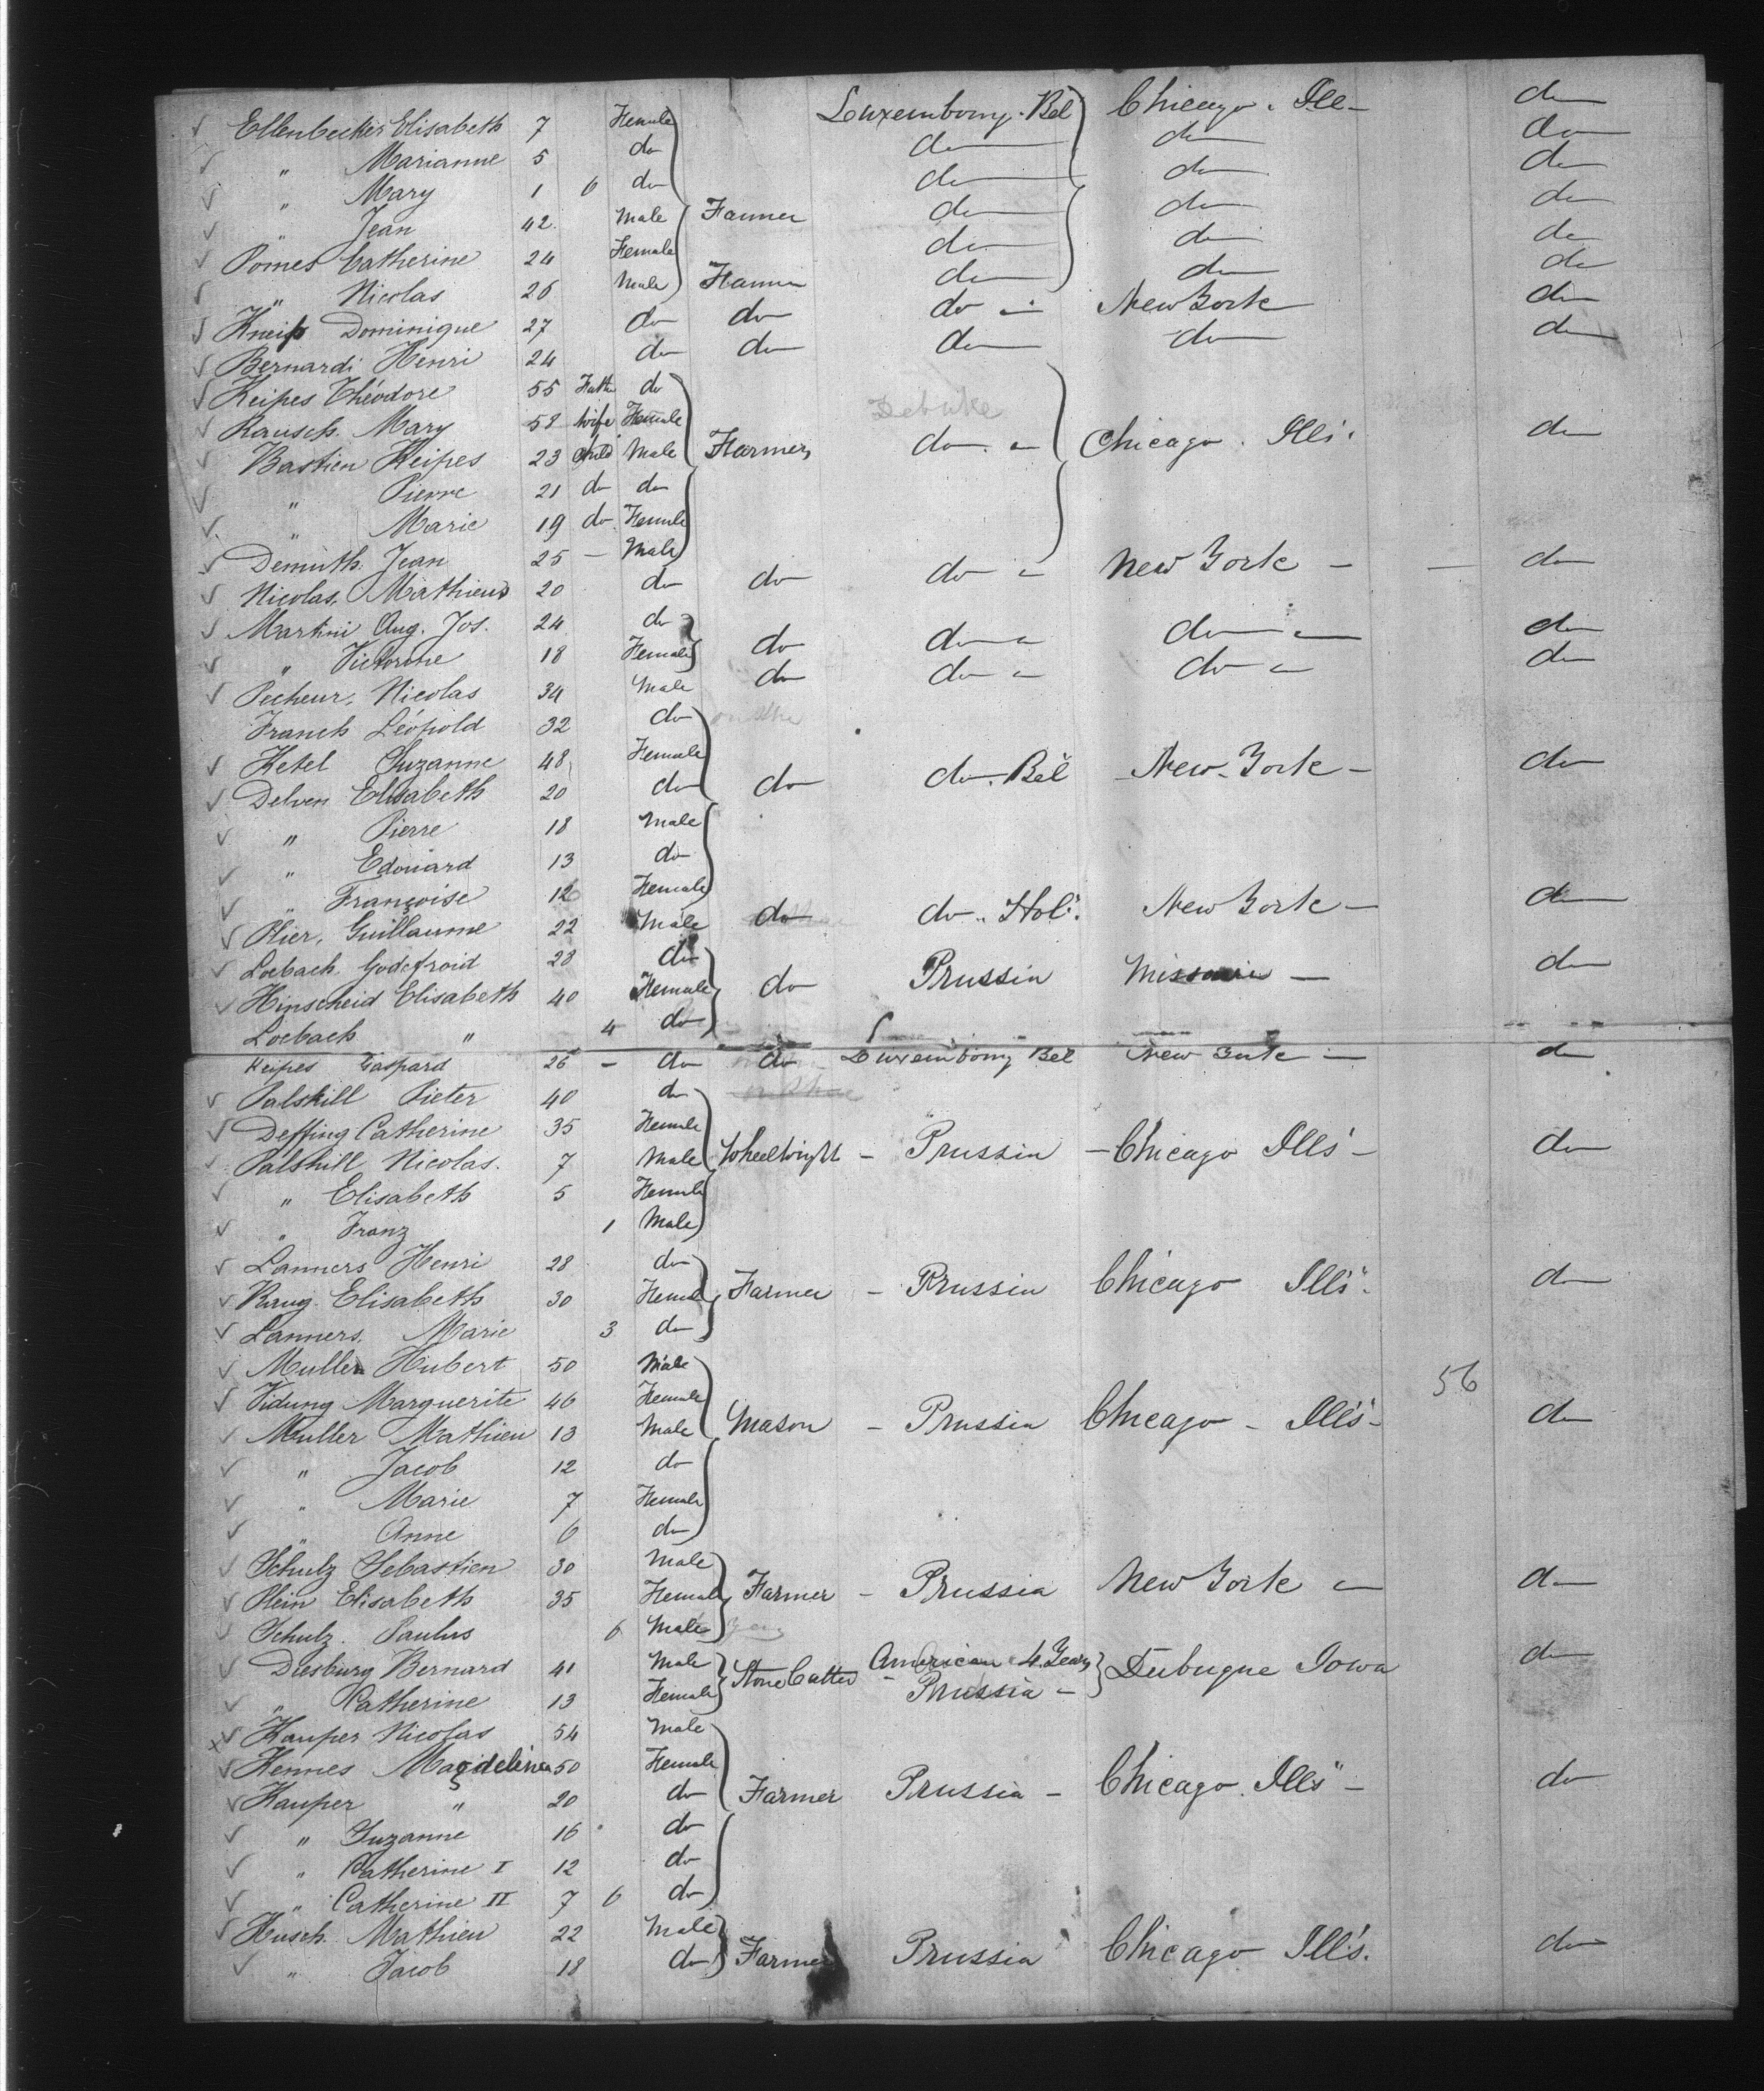 Ellenbecker Elisabeth 7 Female Luxembourg. Bel Chicago. Ill- do
" Marianne 5 do do do do
" Mary 1 6 do do do do
" Jean 42 Male Farmer do do do
Pomes Catherine 24 Female do do do
" Nicolas 26 Male Farmer do do do
Kneip Dominique 27 do do do New York do
Bernardi Henri 24 do do do do do
Keipes Théodore 55 Father do
Rausch. Mary 58 Wife Female
Bastien Keipes 23 Child Male Farmers do Chicago. Ills. do
" Pierre 21 do do
" Marie 19 do Female
Demuth. Jean 25 - Male
Nicolas, Mathieu 20 do do do New York - do
Martini Aug. Jos. 24 do
" Victorine 18 Female do do do do
Pecheur, Nicolas 34 Male do do do do
Franck Léopold 32 do
Ketel Suzanne 48 Female
Delven Elisabeth 20 do do do. Bel New-York - do
" Pierre 18 Male
" Edouard 13 do
" Françoise 12 Female
Plier, Guillaume 22 Male do do. Hol. New York - do
Loebach Godefroid 28 do
Hinscheid Elisabeth 40 Female do Prussia Missouri - do
Loebach " 4 do
Keipes Gaspard 26 - do do Luxembourg Bel New York - do
Palskill Pieter 40 do
Deffing Catherine 35 Female
Palskill Nicolas. 7 Male Wheelwright - Prussia - Chicago Ills - do
" Elisabeth 5 Female
" Franz 1 Male
Lanners Henri 28 do
Raug. Elisabeth 30 Female Farmer - Prussia Chicago Ills. do
Lanners. Marie 3 do
Muller Hubert 50 Male
Vidung Marguerite 46 Female 56
Muller Mathieu 13 Male Mason - Prussia Chicago - Ills - do
" Jacob 12 do
" Marie 7 Female
" Anne 6 do
Schulz Sebastien 30 Male
Plein Elisabeth 35 Female Farmer - Prussia New York do
Schulz. Paulus 6 Male
Diesburg Bernard 41 Male Stone Cutter - American 4 Years Dubuque Iowa do
" Catherine 13 Female Prussia -
Kauper Nicolas 54 Male
Hennes Magdelina 50 Female
Kauper " 20 do Farmer Prussia - Chicago. Ills - do
" Suzanne 16 do
" Catherine I 12 do
" Catherine II 7 6 do
Husch. Mathieu 22 Male
" Jacob 18 do Farmer Prussia Chicago Ills. do